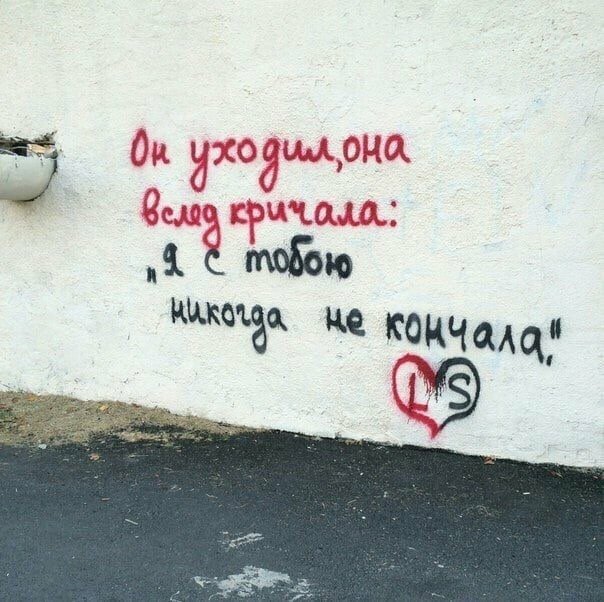 Он уходил, она
вслед кричала:
„Я с тобою
никогда не кончала."
LS